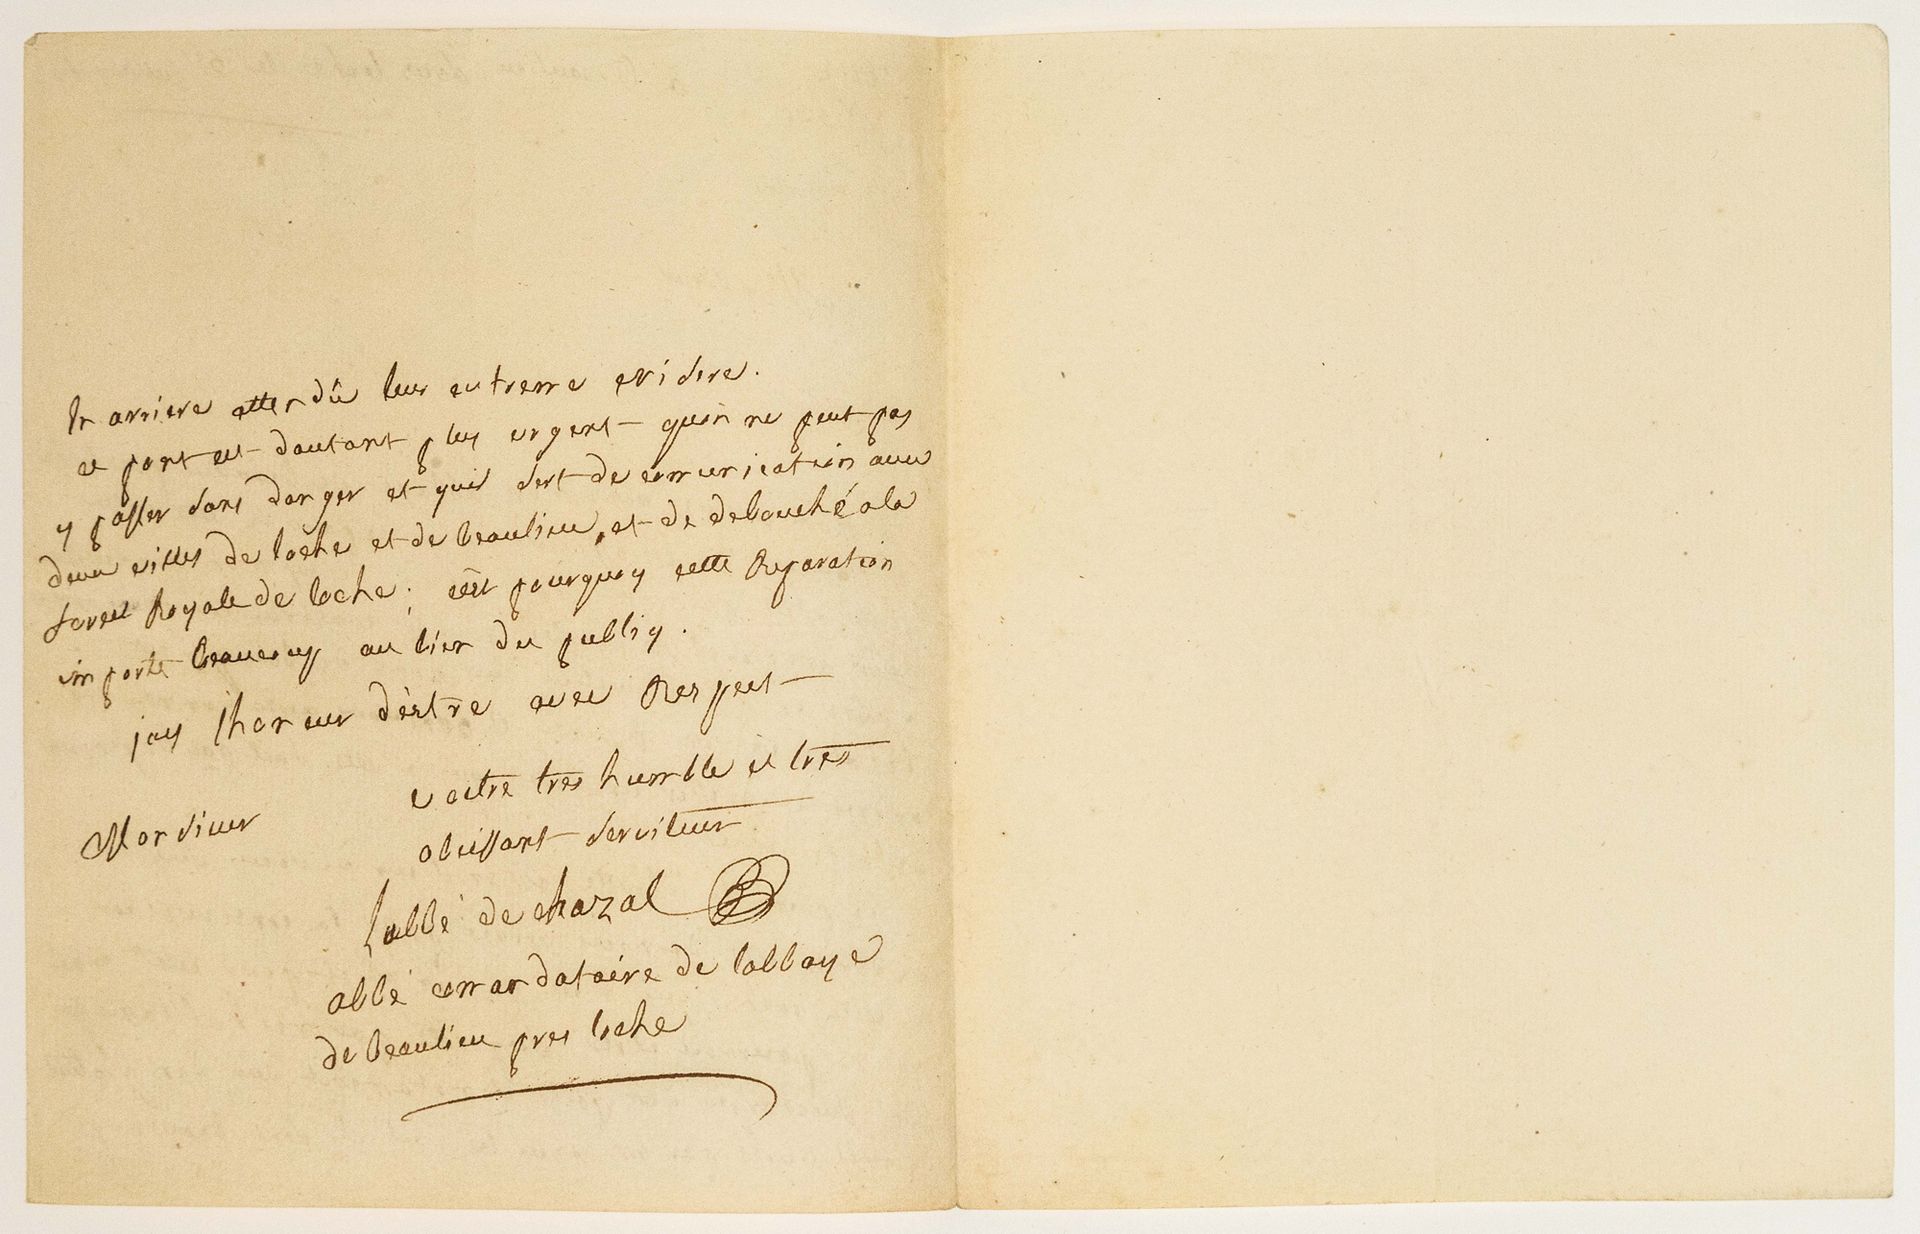 En arriere attendû leur extreme evidence.
ce pont est dautant plus urgent quon ne peut pas
y passer sans danger et quil sert de communication aux
deux villes de loche et de beaulieu, et de debouché a la
forest Royale de loche; cest pourquoy cette Reparation
importe beaucoup au bien du publiq.
jay lhonneur dèstre avec Respect
Monsieur
vostre tres humble et tres
obeissant serviteur
labbé de chazal
abbé commandataire de labbaye
de beaulieu pres loche